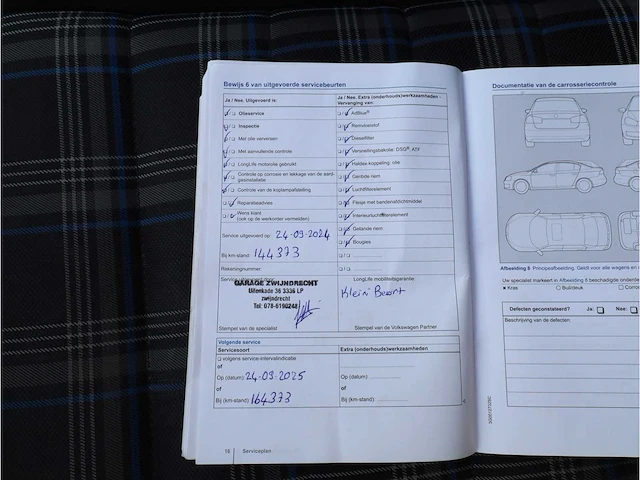 Bewijs 6 van uitgevoerde servicebeurten
Ja / Nee. Uitgevoerd is:
Olieservice
Inspectie
Met olie verversen
Met aanvullende controle
LongLife motorolie gebruikt
Controle op corrosie en lekkage van de aardgasinstallatie
Controle van de koplampafstelling
Reparatieadvies
Wens klant
(ook op de werkorder vermelden)
Service uitgevoerd op: 24-09-2024
Bij km-stand: 144373
Rekeningnummer:
GARAGE ZWIJNDRECHT
Uilenkade 36 3336 LP
zwijndrecht
Tel: 078-6190248
Stempel van de specialist
Ja / Nee. Extra (onderhouds)werkzaamheden -
Vervanging van:
AdBlue®
Remvloeistof
Dieselfilter
Versnellingsbakolie: DSG®, ATF
Haldex-koppeling: olie
Getande riem
Luchtfilterelement
Flesje met bandenafdichtmiddel
Interieurluchtfilterelement
Getande riem
Bougies
LongLife mobiliteitsgarantie:
Klein Beurt
Stempel van de Volkswagen Partner
Volgende service
Servicesoort
volgens service-intervalindicatie
of
Op (datum): 24-09-2025
of
Bij (km-stand): 164373
Extra (onderhouds)werkzaamheden
Op (datum):
of
Bij (km-stand):
16 Serviceplan
Documentatie van de carrosseriecontrole
Afbeelding 8 Principeafbeelding. Geldt voor alle wagens en
Uw specialist markeert in Afbeelding 8 beschadigde onderde
Kras
Buil/deuk
Corro
Defecten geconstateerd? Ja: Nee:
Beschrijving van de defecten: